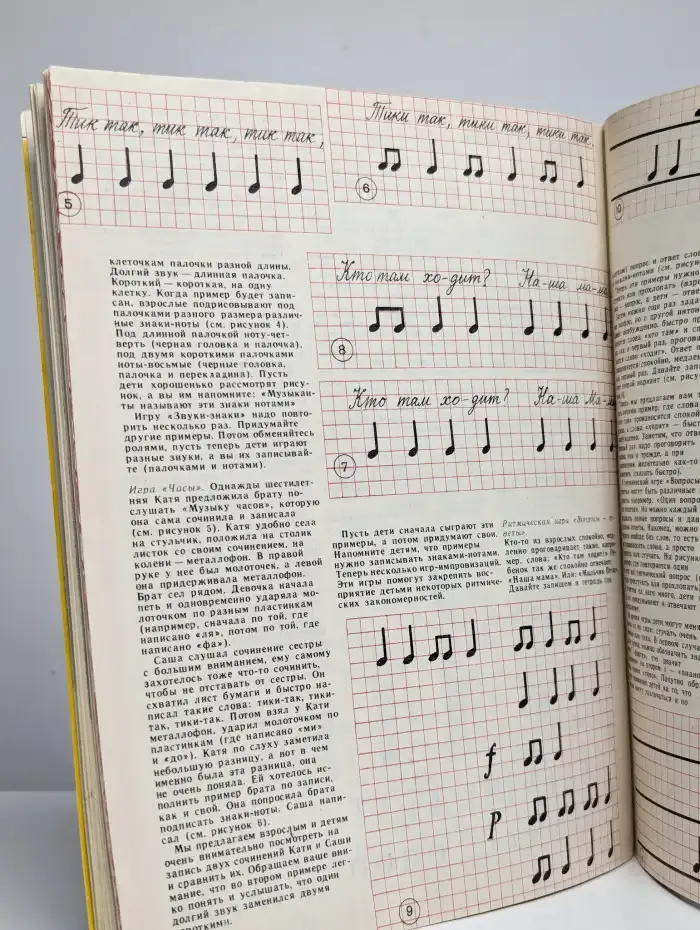 Тик так, тик так, тик так,
5
Тики так, тики так, тики так.
6
клеточкам палочки разной длины.
Долгий звук — длинная палочка.
Короткий — короткая, на одну
клетку. Когда пример будет запи-
сан, взрослые подрисовывают под
палочками разного размера различ-
ные знаки-ноты (см. рисунок 4).
Под длинной палочкой ноту-чет-
верть (черная головка и палочка),
под двумя короткими палочками
ноты-восьмые (черные головка,
палочка и перекладина). Пусть
дети хорошенько рассмотрят рису-
нок, а вы им напомните: «Музыкан-
ты называют эти знаки нотами»
Игру «Звуки-знаки» надо повто-
рить несколько раз. Придумайте
другие примеры. Потом обменяйтесь
ролями, пусть теперь дети играют
разные звуки, а вы их записывай-
те (палочками и нотами).
Игра «Часы». Однажды шестилет-
няя Катя предложила брату по-
слушать «Музыку часов», которую
она сама сочинила и записала
(см. рисунок 5). Катя удобно села
на стульчик, положила на столик
листок со своим сочинением, на
колени — металлофон. В правой
руке у нее был молоточек, а левой
она придерживала металлофон.
Брат сел рядом. Девочка начала
петь и одновременно ударяла мо-
лоточком по разным пластинкам
(например, сначала по той, где
написано «ля», потом по той, где
написано «фа»).
Саша слушал сочинение сестры
с большим вниманием, ему самому
захотелось тоже что-то сочинить,
чтобы не отставать от сестры. Он
схватил лист бумаги и быстро на-
писал такие слова: тики-так, тики-
так, тики-так. Потом взял у Кати
металлофон, ударил молоточком по
пластинкам (где написано «ми»
и «до»). Катя по слуху заметила
небольшую разницу, а вот в чем
именно была эта разница, она
не очень доняла. Ей хотелось ис-
полнить пример брата по записи,
как и свой. Она попросила брата
подписать знаки-ноты. Саша напи-
сал (см. рисунок 6).
Мы предлагаем взрослым и детям
очень внимательно посмотреть на
запись двух сочинений Кати и Саши
и сравнить их. Обращаем ваше вни-
мание, что во втором примере лег-
ко понять и услышать, что один
долгий звук заменился двумя
короткими.
Кто там хо-дит? На-ша ма-ма
8
Кто там хо-дит? На-ша Ма-ма
7
Пусть дети сначала сыграют эти
примеры, а потом придумают свои.
Напомните детям, что примеры
нужно записывать знаками-нотами.
Теперь несколько игр-импровизаций.
Эти игры помогут закрепить вос-
приятие детьми некоторых ритмиче-
ских закономерностей.
Ритмическая игра «Вопрос —
веты».
Кто-то из взрослых спокойно,
ленно проговаривает, такие,
мер, слова: «Кто там ходит?»
бенок так же спокойно отвечает:
«Наша мама». Или: «Мальчик
Давайте запишем в тетрадь
f
p
9
10